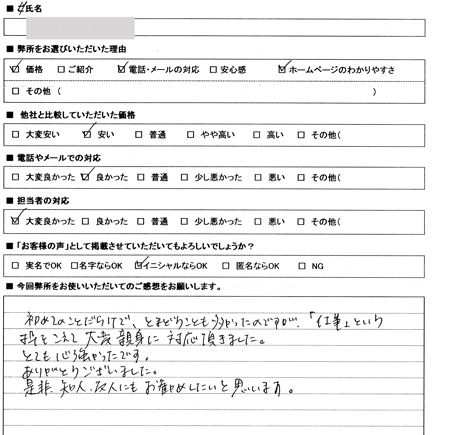 ■ お氏名
■ 弊所をお選びいただいた理由
☑ 価格 □ ご紹介 ☑ 電話・メールの対応 □ 安心感 ☑ ホームページのわかりやすさ
□ その他 ( )
■ 他社と比較していただいた価格
□ 大変安い ☑ 安い □ 普通 □ やや高い □ 高い □ その他(
■ 電話やメールでの対応
□ 大変良かった ☑ 良かった □ 普通 □ 少し悪かった □ 悪い □ その他(
■ 担当者の対応
☑ 大変良かった □ 良かった □ 普通 □ 少し悪かった □ 悪い □ その他(
■ 「お客様の声」として掲載させていただいてもよろしいでしょうか?
□ 実名でOK □ 名字ならOK ☑ イニシャルならOK □ 匿名ならOK □ NG
■ 今回弊所をお使いいただいてのご感想をお願いします。
初めてのことだらけで、とまどうことも多かったのですが、「仕事」という
枠をこえて大変親身に対応頂きました。
とても心強かったです。
ありがとうございました。
是非、知人、友人にもお勧めしたいと思います。